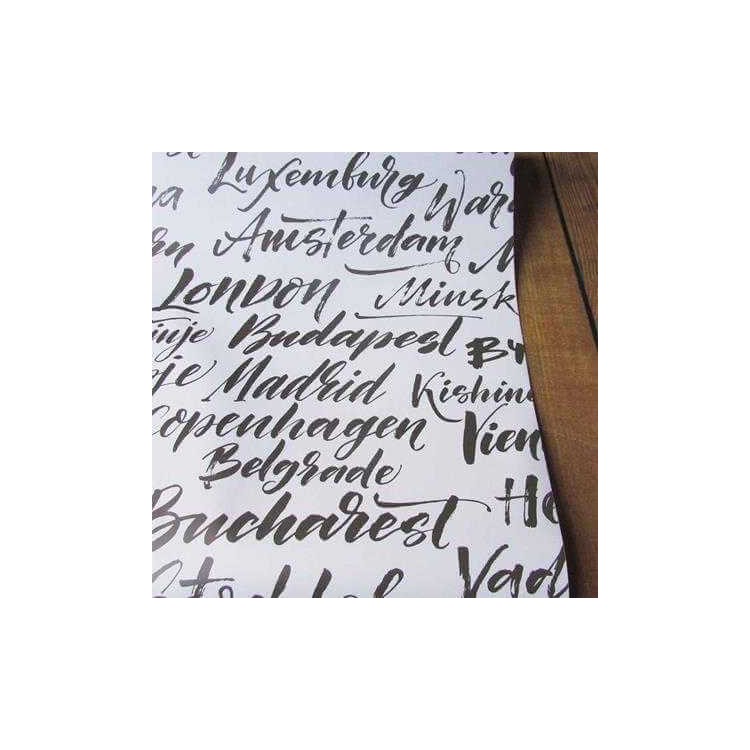 Luxemburg
Amsterdam
London Minsk
Budapest
Madrid Kishin
Copenhagen Vien
Belgrade
Bucharest He
Vad